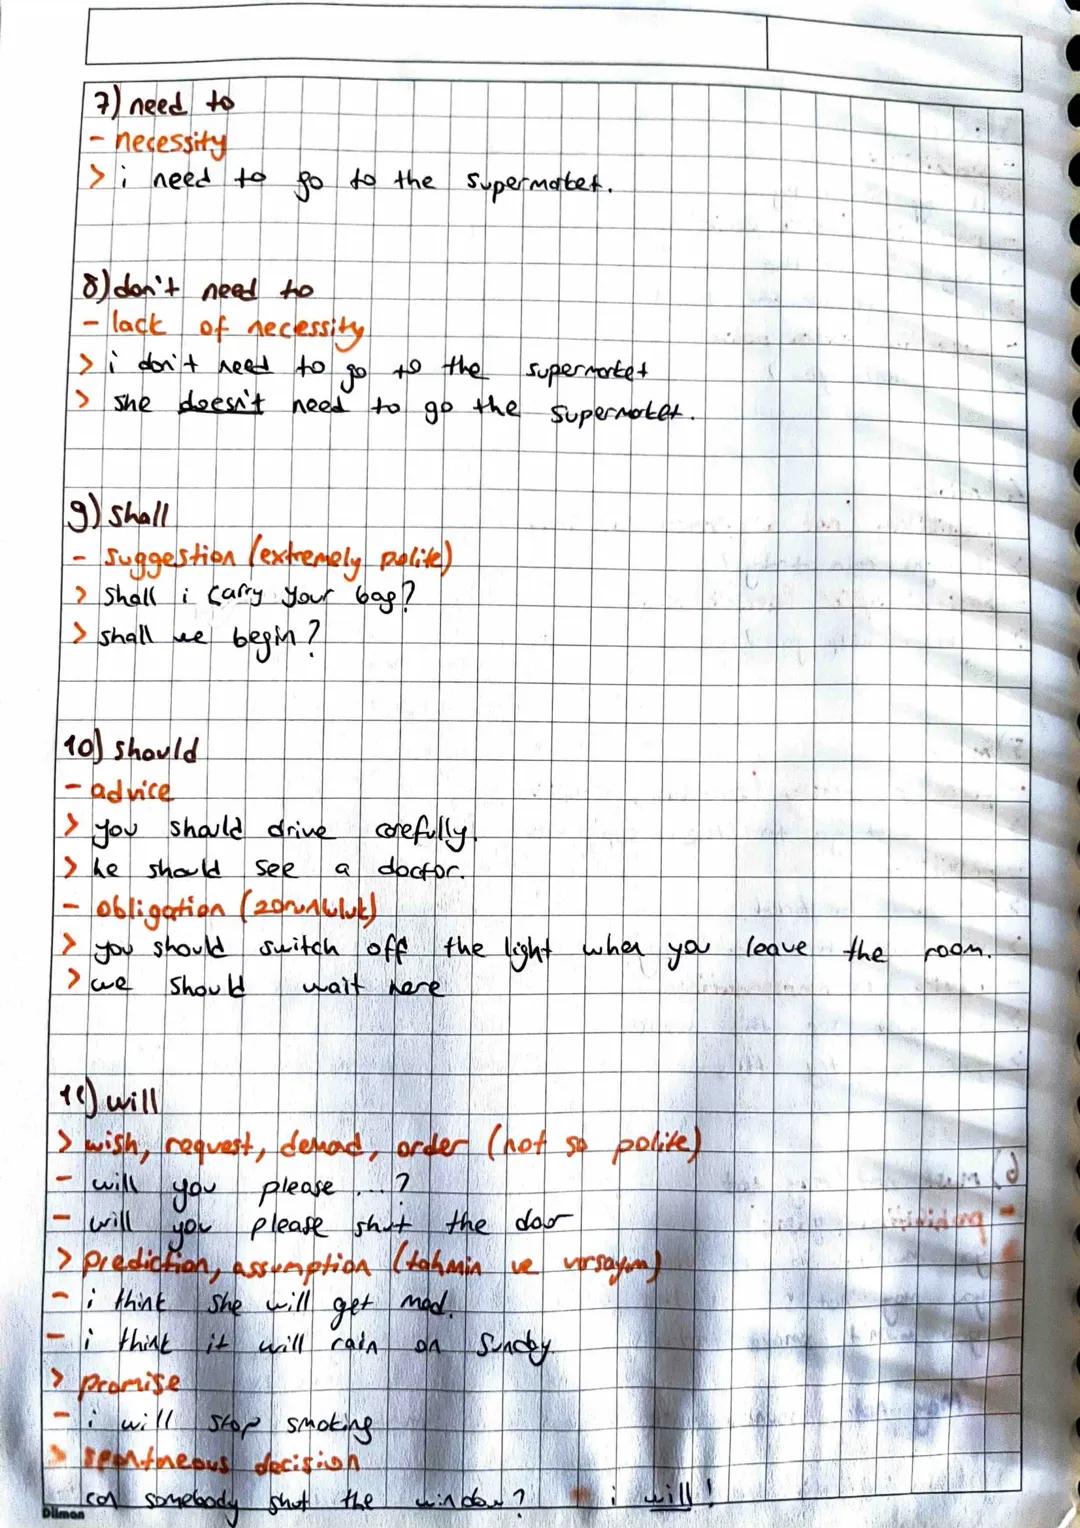 7) need to
- necessity
> i need to go to the supermarket.
8) don't need to
- lack of necessity
> i don't need to go to the supermarket
> she doesn't need to go the supermarket.
9) shall
- suggestion (extremely polite)
> shall i carry your bag?
> shall we begin?
10) should
- advice
> you should drive carefully.
> he should see a doctor.
- obligation (zorunluluk)
> you should switch off the light when you leave the room.
> we should wait here
11) will
> wish, request, demand, order (not so polite)
- will you please ...?
- will you please shut the door
> prediction, assumption (tahmin ve varsayım)
- i think she will get mad.
- i think it will rain on Sunday
> promise
- i will stop smoking
> spontneous decision
can somebody shut the window? i will!
Dilman